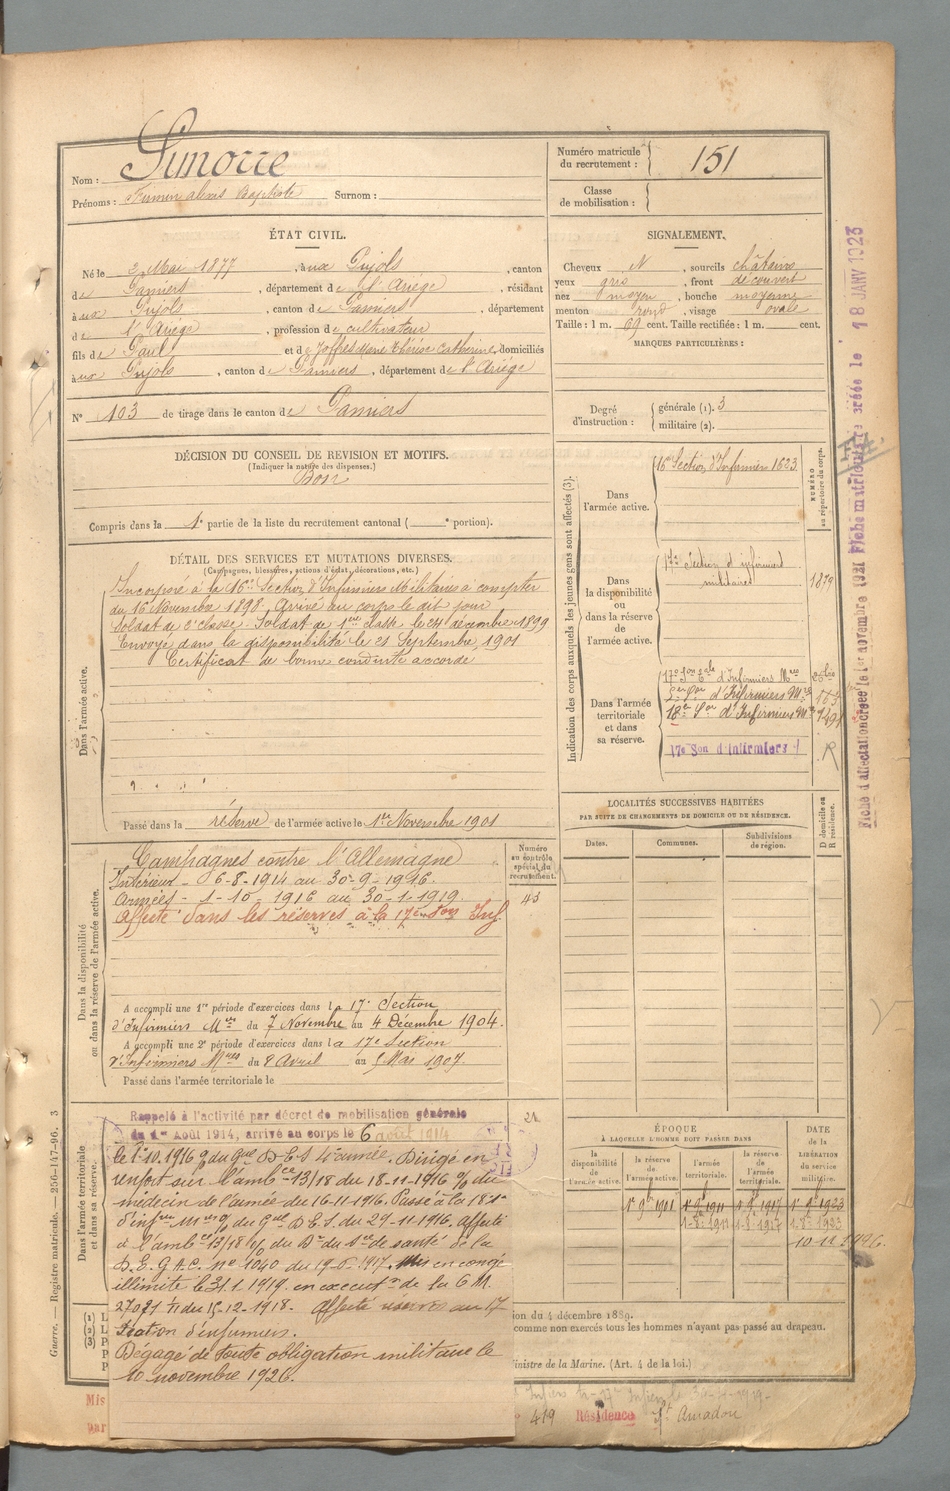 Nom : Simorre
Prénoms : Firmin alexis Baptiste Surnom :
Numéro matricule du recrutement : 151
Classe de mobilisation :
ÉTAT CIVIL.
Né le 2 Mai 1877, à aux Pujols, canton
de Pamiers, département de l'Ariège, résidant
à aux Pujols, canton de Pamiers, département
de l'Ariège, profession de cultivateur
fils de Paul et de Joffres Marie Thérèse Catherine, domiciliés
à aux Pujols, canton de Pamiers, département de l'Ariège
N° 103 de tirage dans le canton de Pamiers
SIGNALEMENT.
Cheveux N, sourcils châtains
yeux gris, front découvert
nez moyen, bouche moyenne
menton rond, visage ovale
Taille : 1 m. 69 cent. Taille rectifiée : 1 m. cent.
MARQUES PARTICULIÈRES :
Degré d'instruction : générale (1). 3
militaire (2).
DÉCISION DU CONSEIL DE REVISION ET MOTIFS.
(Indiquer la nature des dispenses.)
Bon
Compris dans la 1e partie de la liste du recrutement cantonal ( e portion).
DÉTAIL DES SERVICES ET MUTATIONS DIVERSES.
(Campagnes, blessures, actions d'éclat, décorations, etc.)
Dans l'armée active.
Incorporé à la 16e Section d'Infirmiers Militaires à compter
du 16 Novembre 1898. Arrivé au corps le dit jour
Soldat de 2e classe. Soldat de 1ere classe le 24 décembre 1899
Envoyé dans la disponibilité le 21 Septembre 1901
Certificat de bonne conduite accordé
Passé dans la réserve de l'armée active le 1er Novembre 1901
Indication des corps auxquels les jeunes gens sont affectés (3).
NUMÉRO au répertoire du corps.
Dans l'armée active.
16e Section d'Infirmiers 1623
Dans la disponibilité ou dans la réserve de l'armée active.
17e Section d'infirmiers
militaires
1879
Dans l'armée territoriale et dans sa réserve.
d'Infirmiers Mres
d'Infirmiers Mres
18e Son d'Infirmiers Mres
17e Son d'infirmiers
R
Fiche d'affectation créée le 1er novembre 1921
Fiche matriculaire créée le 18 JANV 1923
Dans la disponibilité ou dans la réserve de l'armée active.
Numéro au contrôle spécial du recrutement.
45
Campagnes contre l'Allemagne
Intérieur - 6-8-1914 au 30-9-1916.
Armées - 1-10-1916 au 30-1-1919.
Affecté dans les réserves à la 17e Son Inf.
A accompli une 1re période d'exercices dans la 17e Section
d'Infirmiers Mres du 7 Novembre au 4 Décembre 1904.
A accompli une 2e période d'exercices dans la 17e Section
d'Infirmiers Mres du 8 Avril au 5 Mai 1907.
Passé dans l'armée territoriale le
LOCALITÉS SUCCESSIVES HABITÉES
PAR SUITE DE CHANGEMENTS DE DOMICILE OU DE RÉSIDENCE.
Dates. Communes. Subdivisions de région.
D domicile ou R résidence.
Dans l'armée territoriale et dans sa réserve.
Rappelé à l'activité par décret de mobilisation générale
du 1er Août 1914, arrivé au corps le 6 août 1914
le 1-10-1916 du Gal D.E.S. 4e armée. Dirigé en
renfort sur l'ambce 13/18 du 18-11-1916 du
médecin de l'armée du 16-11-1916. Passé à la 18e
d'infres Mres du Gal D.E.S. du 29-11-1916. Affecté
à l'ambce 13/18 du de santé de la
D.E. G.A.C. n° 1040 du 19-6-1917. Mis en congé
illimité le 31.1.1919. en execut° de la C.M.
27021 du 15-12-1918. Affecté réserve au 17
Section d'infirmiers.
Dégagé de toute obligation militaire le
10 novembre 1926.
ÉPOQUE
À LAQUELLE L'HOMME DOIT PASSER DANS
la disponibilité de l'armée active. la réserve de l'armée active. l'armée territoriale. la réserve de l'armée territoriale.
DATE de la LIBÉRATION du service militaire.
1er 9bre 1901 1er 9bre 1911 1er 9bre 1917 1er 9bre 1923
10-11-1926
ion du 4 décembre 1889.
comme non exercés tous les hommes n'ayant pas passé au drapeau.
inistre de la Marine. (Art. 4 de la loi.)
Guerre. — Registre matricule. — 256-147-96. 3
Mis
par
419 Résidence St Amadou